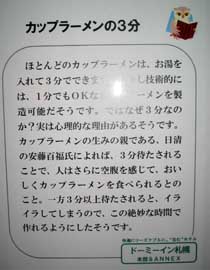 カップラーメンの3分
ほとんどのカップラーメンは、お湯を
入れて3分でできま し技術的に
は、1分でもOKな ラーメンを製
造可能だそうです。ではなぜ3分なの
か？実は心理的な理由があるそうです。
カップラーメンの生みの親である、日清
の安藤百福氏によれば、3分待たされる
ことで、人はさらに空腹を感じて、おい
しくカップラーメンを食べられるとの
こと。一方3分以上待たされると、イラ
イラしてしまうので、この絶妙な時間で
作れるようにしたそうです。
ドーミーイン札幌
本館&ANNEX